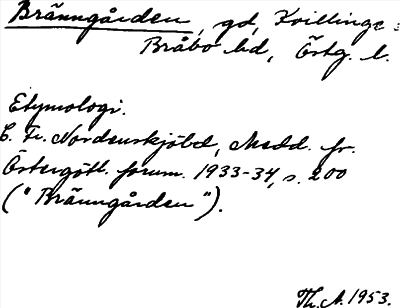 Bränngården, gd, Kvillinge s
Bråbo hd, Östg. l.
Etymologi.
C. Fr. Nordenskjöld, Medd. fr.
Östergötl. fornm. 1933-34, s. 200
("Bränngården").
Th. A. 1953.